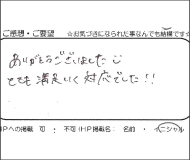 ご感想・ご要望 ☆お気づきになられた事なんでも結構です☆
ありがとうございました
とても満足いく対応でした!!
HPへの掲載 可 ・ 不可 (HP掲載名: 名前 ・ イニシャル